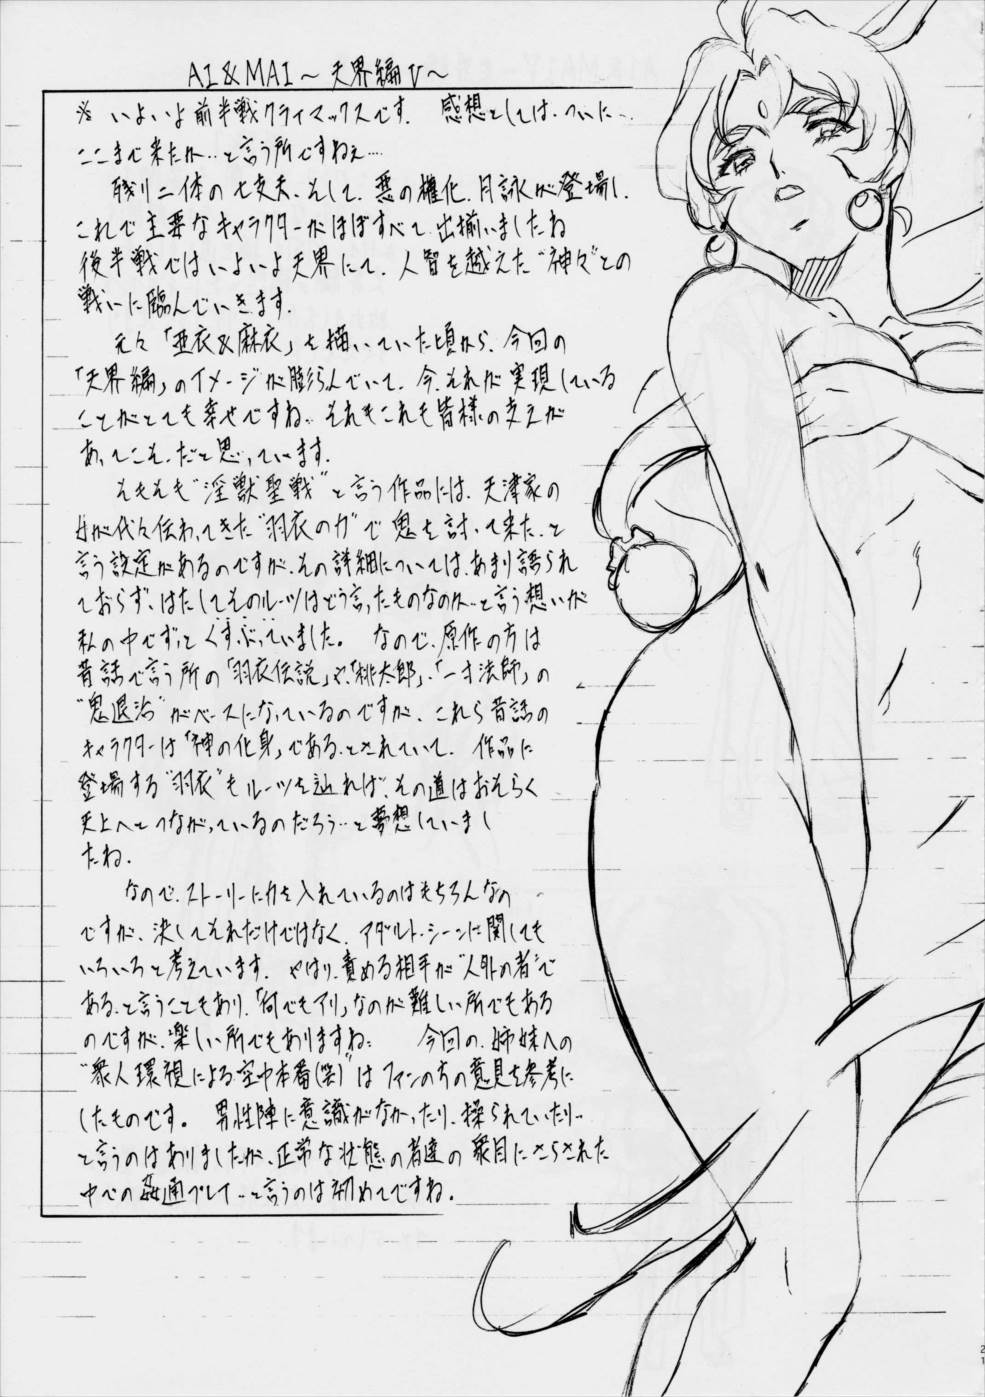 AI & MAI ～ 天界編 V ～
※ いよいよ前半戦クライマックスです. 感想としては、ついに…
ここまで来たか…と言う所ですねぇ…
残り二体の七支天、そして、悪の権化、月詠が登場し、
これで主要なキャラクターがほぼすべて、出揃いましたね
後半戦ではいよいよ天界にて、人智を越えた“神々”との
戦いに臨んでいきます.
元々「亜衣&麻衣」を描いていた頃から、今回の
「天界編」のイメージが膨らんでいて、今、それが実現している
ことがとても幸せですね… それもこれも皆様の支えが
あってこそ、だと思っています.
そもそも“淫獣聖戦”と言う作品には、天津家の
女が代々伝わってきた“羽衣の力”で鬼を討って来た、と
言う設定があるのですが、その詳細については、あまり語られ
ておらず、はたしてそのルーツはどう言ったものなのか…と言う想いが
私の中でずっとくすぶっていました。 なので、原作の方は
昔話で言う所の「羽衣伝説」や、「桃太郎」、「一寸法師」の
“鬼退治”がベースになっているのですが、これら昔話の
キャラクターは「神の化身」である、とされていて、作品に
登場する“羽衣”もルーツを辿れば、その道はおそらく
天上へとつながっているのだろう…と夢想していまし
たね.
なので、ストーリーに力を入れているのはもちろんなの
ですが、決してそれだけではなく、アダルト・シーンに関しても
いろいろと考えています. やはり、責める相手が“人外の者”で
ある、と言うこともあり、「何でもアリ」なのが難しい所でもある
のですが、楽しい所でもありますね… 今回の、姉妹への
“衆人環視による空中本番(笑)”はファンの方の意見を参考に
したものです。 男性陣に意識がなかったり、操られていたり…
と言うのはありましたが、正常な状態の者達の衆目にさらされた
中での姦通プレイ…と言うのは初めてですね.
21